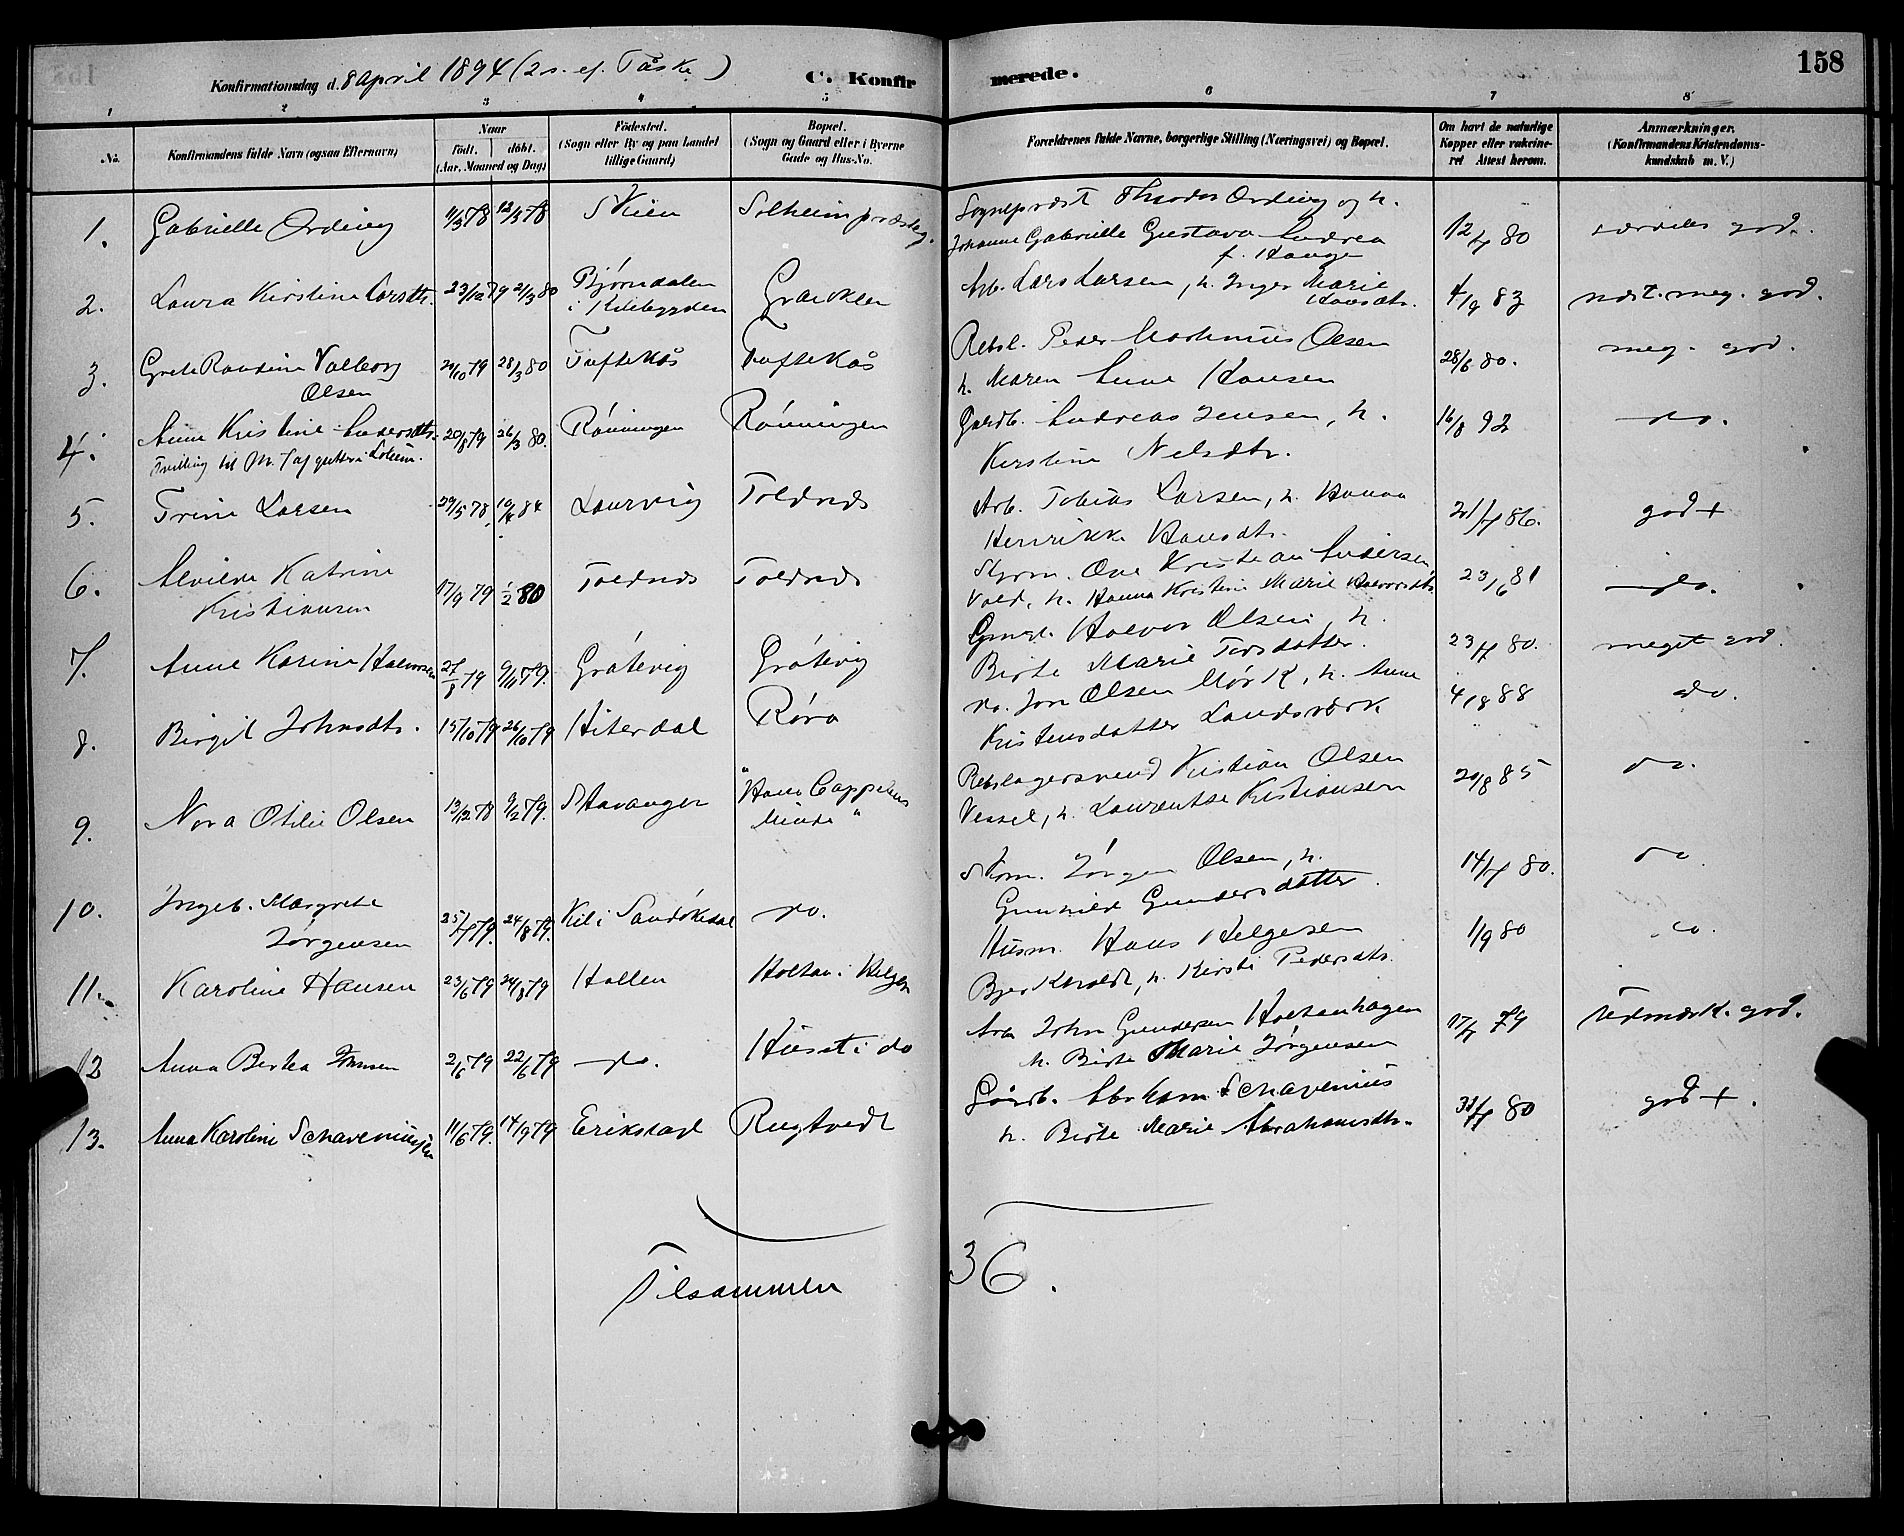 158
Konfirmationsdag d. 8 April 1894 (2 s. ef. Påske)
C. Konfirmerede.
1 2 3 4 5 6 7 8
No. Konfirmandens fulde Navn (ogsaa Efternavn) Naar født. døbt. (Aar, Maaned og Dag) Fødested. (Sogn eller By og paa Landet tillige Gaard) Bopæl. (Sogn og Gaard eller i Byerne Gade og Hus-No. Forældrenes fulde Navne, borgerlige Stilling (Næringsvei) og Bopæl. Om havt de naturlige Kopper eller vakcineret Attest herom. Anmærkninger. (Konfirmandens Kristendomskundskab m. V.)
1. Gabrielle Ording 11/3 78 12/5 78 Skien Solheim præsteg. Sognepræst Theodor Ording og h. 12/7 80 særdeles god.
Johanne Gabrielle Gustava Andrea
f. Hauge
2. Laura Kirstine Larsdtr. 23/12 79 21/3 80 Bjørndalen Graaklen Arb. Lars Larsen, h. Inger Marie 4/9 83 næst. meg. god.
i Kilebygden Hansdtr.
3. Grete Randine Valborg 29/10 79 28/3 80 Tuftekås Tuftekås Rebsl. Peder Mathinius Olsen 28/6 80. meg. god.
Olsen h. Maren Line Hansen
4. Anne Kristine Andersdtr. 20/8 79 26/3 80. Rønningen Rønningen Gårdb. Andreas Jensen, h. 16/8 92 do.
Tvilling til No. 7 af gutter i Solum. Kirstine Nelsdtr.
5. Trine Larsen 29/5 78 10/4 84 Laurvig Toldnes Arb. Tobias Larsen, h. Hanna 21/7 86. god +
Henrikke Hansdtr.
6. Elvilde Katrine 17/9 79 1/2 80 Toldnes Toldnes Styrm. Ove Kristian Andersen 23/6 81 do.
Kristiansen Vold, h. Hanna Kristine Marie Halvorsdtr.
7. Anne Karine Halvorsen 27/8 79 9/11 79. Gråtevig Gråtevig Gmd. Halvor Olsen, h. 23/7 80. meget god.
Birte Marie Torsdatter.
8. Birgit Johnsdtr. 15/10 79 26/10 79 Hiterdal Røra do. Jon Olsen Mørk, h. Anne 4/8 88 do.
Kristensdatter Landsværk
9. Nora Otilie Olsen 13/12 78 9/2 79. Stavanger "Hans Cappelens Rebslagersvend Kristian Olsen 20/8 85 do.
Minde" Vessel, h. Laurentse Kristiansen
10. Ingeb. Margrete 25/7 79. 24/8 79. Kil i Sandøkedal do. Skom. Jørgen Olsen, h. 14/7 80. do
Jørgensen Gunhild Gundersdatter.
11. Karoline Hansen 23/6 79 24/8 79 Hollen Holtan i Helgen Husm. Hans Helgesen 1/9 80 do.
Bjerkholdt, h. Kirsti Pedersdtr.
12 Anna Berta Hansen 2/6 79 22/6 79 do. Huset i do Arb John Gundersen Holtanhagen 17/7 79 Udmærk. god.
h. Birte Marie Jørgensen
13. Anna Karoline Schavenius 11/6 79. 14/9 79 Erikstad Rugtvedt Gårdb. Abraham Schavenius 31/7 80 god +.
h. Birte Marie Abrahamsdtr.
Tilsammen 36.